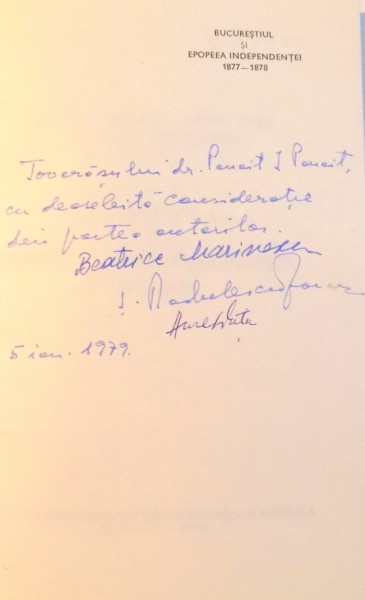 BUCUREȘTIUL
ȘI
EPOPEEA INDEPENDENȚEI
1877 – 1878
Tovarășului dr. Panait I Panait,
cu deosebită considerație
din partea autorilor.
Beatrice Marinescu
Ș. Rădulescu Zoner
Aurel Duțu
5 ian. 1979.